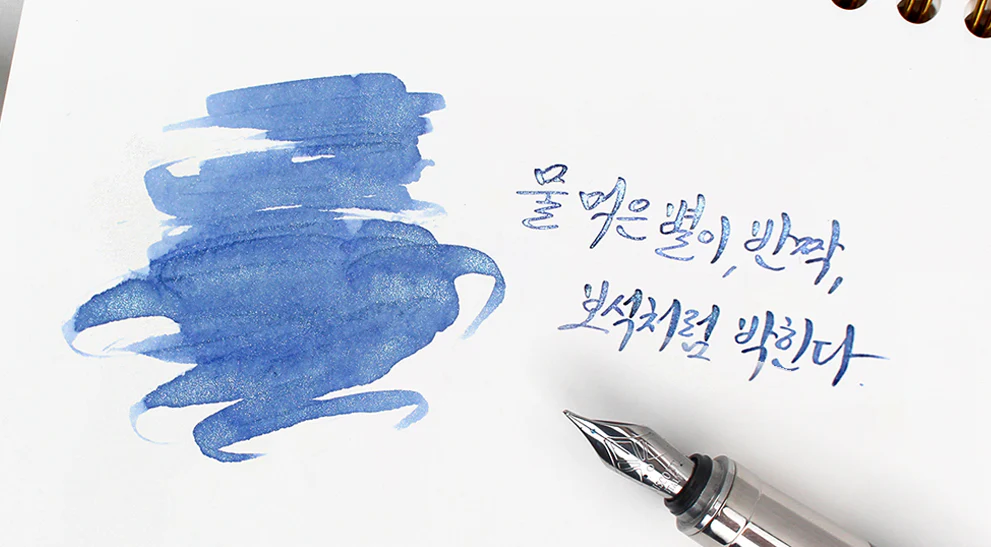 물 먹은 별이, 반짝,
보석처럼 박힌다.